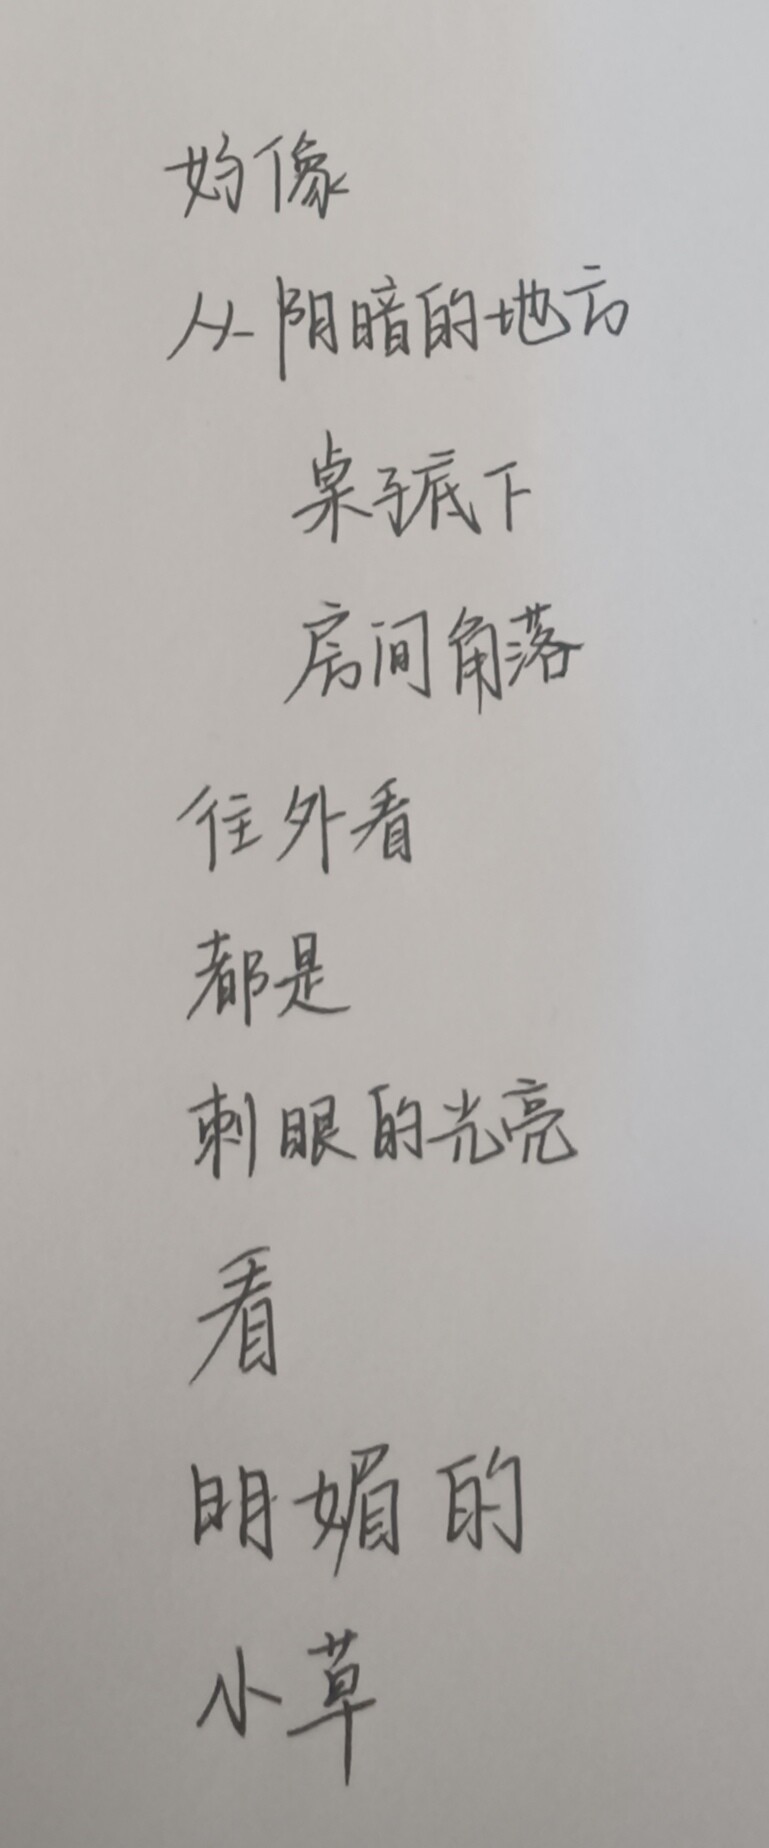 好像
从阴暗的地方
桌子底下
房间角落
往外看
都是
刺眼的光亮
看
明媚的
小草